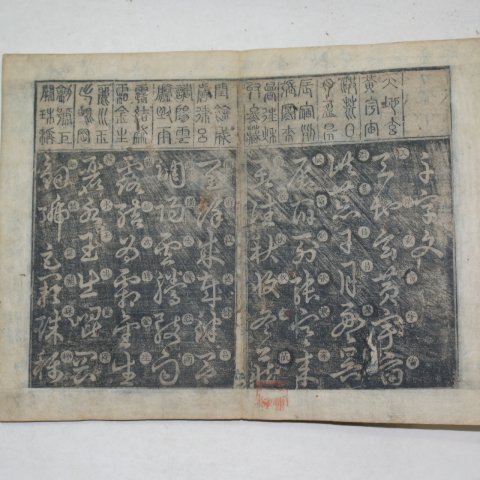 天地玄
黃宇宙
洪荒日
月盈昃
辰宿列
張寒來
暑往秋
收冬藏
閏餘成
歲律呂
調陽雲
騰致雨
露結爲
霜金生
麗水玉
出崑岡
劍號巨
闕珠稱
千字文
天地玄黃宇宙
洪荒日月盈昃
辰宿列張寒來
暑往秋收冬藏
閏餘成歲律呂
調陽雲騰致雨
露結爲霜金生
麗水玉出崑岡
劍號巨闕珠稱